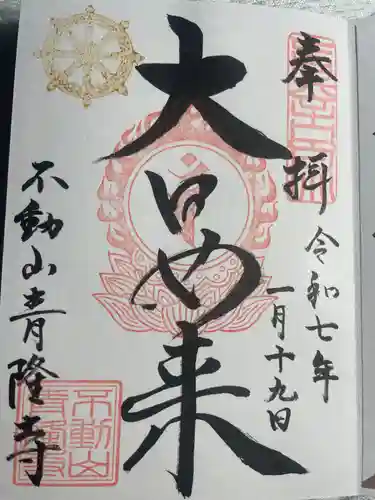 奉拝
令和七年
一月十九日
大日如来
不動山青隆寺
不動山
青隆寺